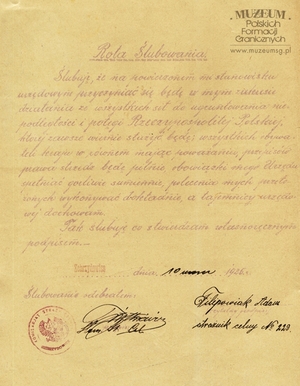 MUZEUM
Polskich
Formacji
Granicznych
www.muzeumsg.pl
Rota Ślubowania.
Ślubuję, że na powierzonem mi stanowisku
urzędowym przyczyniać się będę w mym zakresie
działania ze wszystkich sił do ugruntowania nie-
podległości i potęgi Rzeczypospolitej Polskiej,
której zawsze wiernie służyć będę; wszystkich obywa-
teli kraju w równem mając zachowaniu, przepisów
prawa strzedz będę pilnie, obowiązki mego Urzędu
spełniać gorliwie i sumiennie, polecenia mych przeło-
żonych wykonywać dokładnie, a tajemnicy urzędo-
wej dochowam.
Tak ślubuję co stwierdzam własnoręcznym
podpisem.
dnia 10 1926 r.
Ślubowanie odebrałem:
Filipowiak Adam
strażnik celny No 229